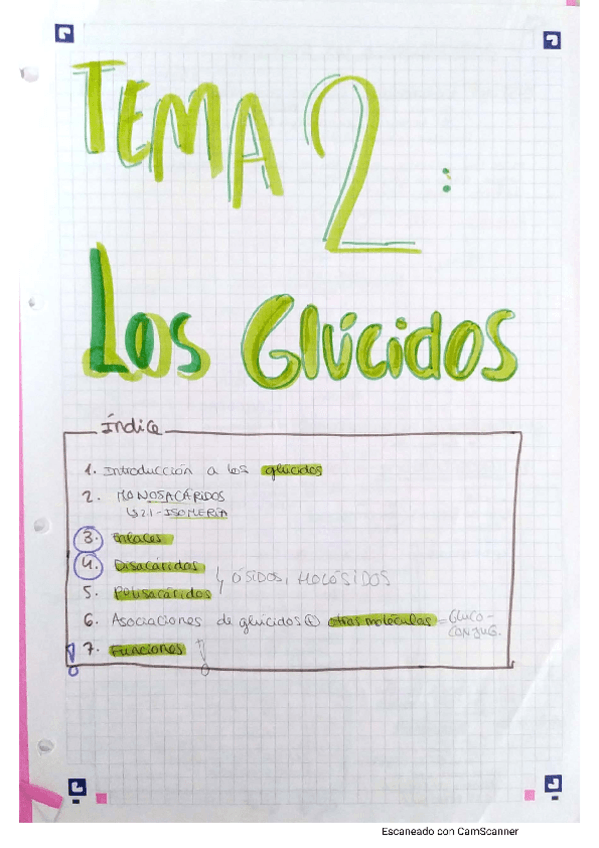 TEMA 2:
Los Glúcidos
Índice
1. Introducción a los glúcidos
2. MONOSACÁRIDOS
↳ 2.1 - ISOMERÍA
3. Enlaces
4. Disacáridos
ÓSIDOS, HOLÓSIDOS
5. Polisacáridos
6. Asociaciones de glúcidos c otras moléculas = GLUCO-
CONJUG.
! 7. Funciones !
Escaneado con CamScanner